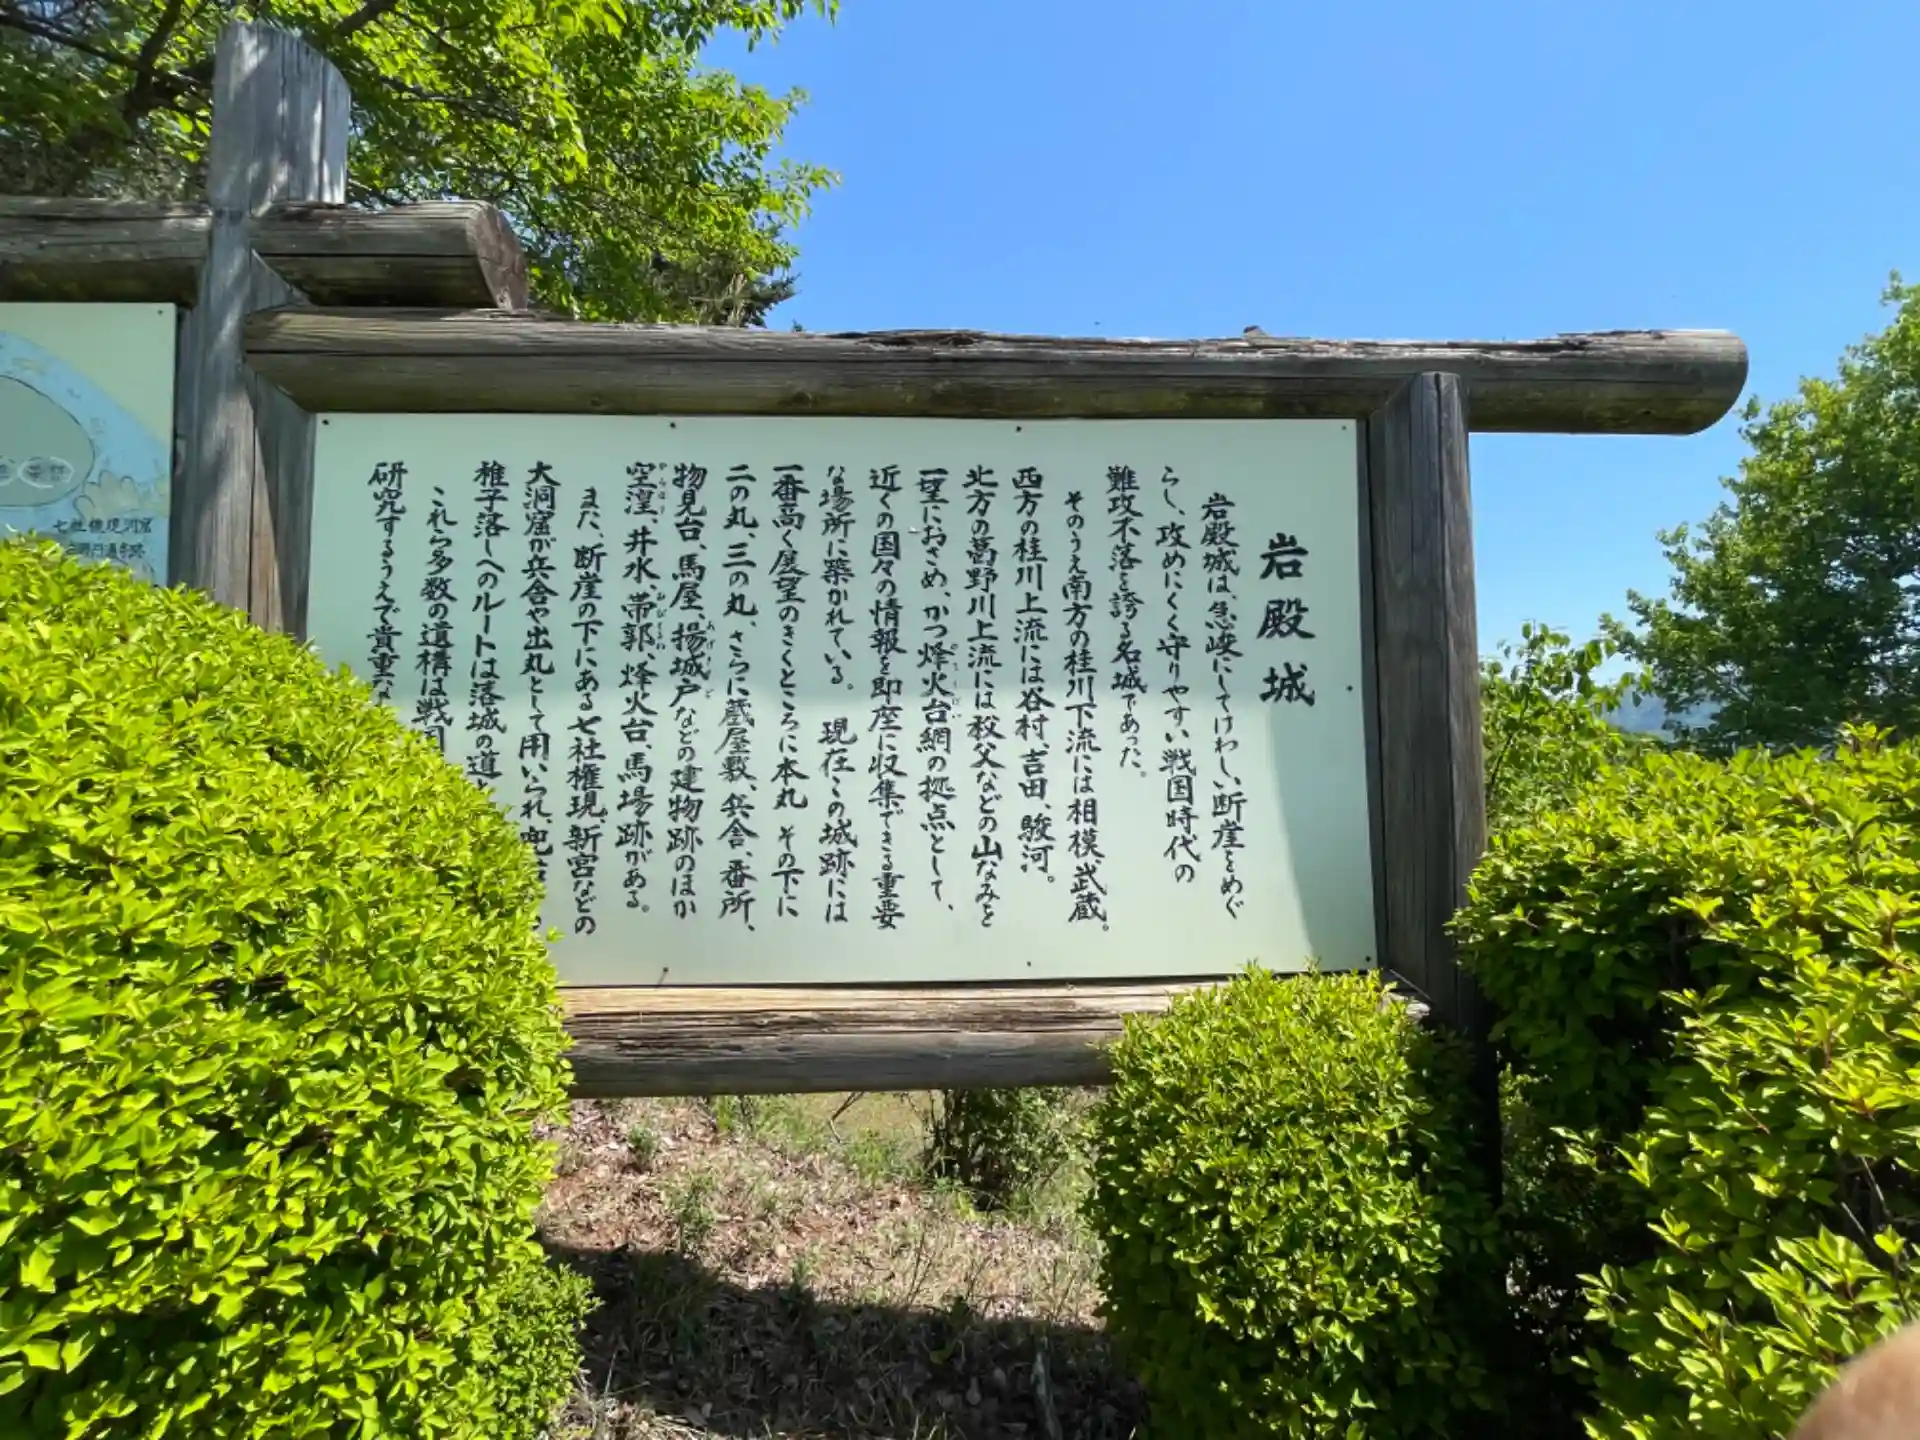 岩殿城
岩殿城は、急峻にしてけわしい断崖をめぐ
らし、攻めにくく守りやすい戦国時代の
難攻不落を誇る名城であった。
そのうえ南方の桂川下流には相模、武蔵。
西方の桂川上流には谷村、吉田、駿河。
北方の葛野川上流には秩父などの山なみを
一望におさめ、かつ烽火台網の拠点として、
近くの国々の情報を即座に収集できる重要
な場所に築かれている。現在この城跡には
一番高く展望のきくところに本丸 その下に
二の丸、三の丸、さらに蔵屋敷、兵舎、番所、
物見台、馬屋、揚城戸などの建物跡のほか
空湟、井水、帯郭、烽火台、馬場跡がある。
また、断崖の下にある七社権現、新宮などの
大洞窟が兵舎や出丸として用いられ、
稚子落しへのルートは落城の道
これら多数の遺構は戦国
研究するうえで貴重な
七社権現洞窟